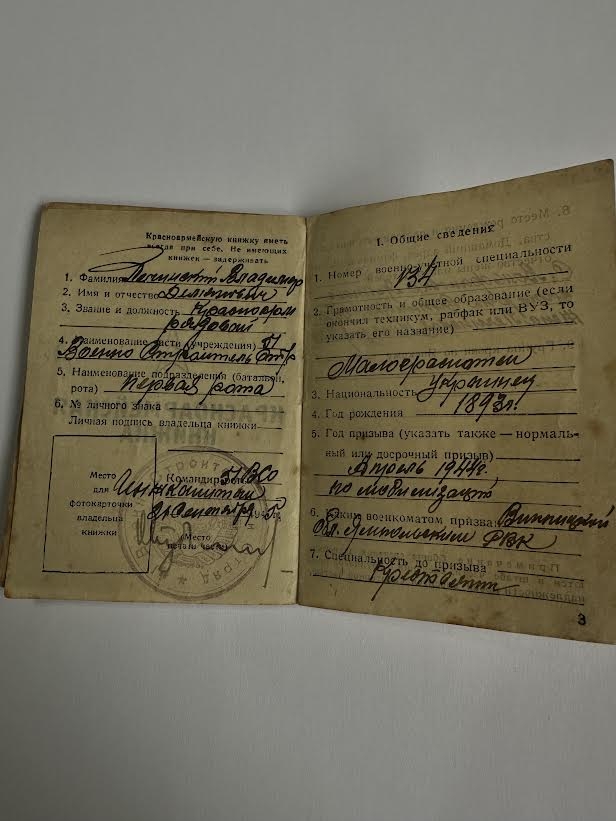 Красноармейскую книжку иметь
всегда при себе. Не имеющих
книжек — задерживать
1. Фамилия Владимир
2. Имя и отчество
3. Звание и должность Красноарм
рядовой
4. Наименование части (учреждения) 51
Военно Строитель Отр
5. Наименование подразделения (батальон,
рота) первая рота
6. № личного знака
Личная подпись владельца книжки
Место
для
фотокарточки
владельца
книжки
Командир 51 ВСО
Инж капитан
(Место
печати части)
I. Общие сведения
1. Номер военно-учетной специальности
134
2. Грамотность и общее образование (если
окончил техникум, рабфак или ВУЗ, то
указать его название)
Малограмотей
3. Национальность Украинец
4. Год рождения 1893г.
5. Год призыва (указать также — нормаль-
ный или досрочный призыв)
Апрель 1944г.
по мобилизаций
6. Каким военкоматом призван Винницкой
обл. Ямпольским РВК
7. Специальность до призыва
3